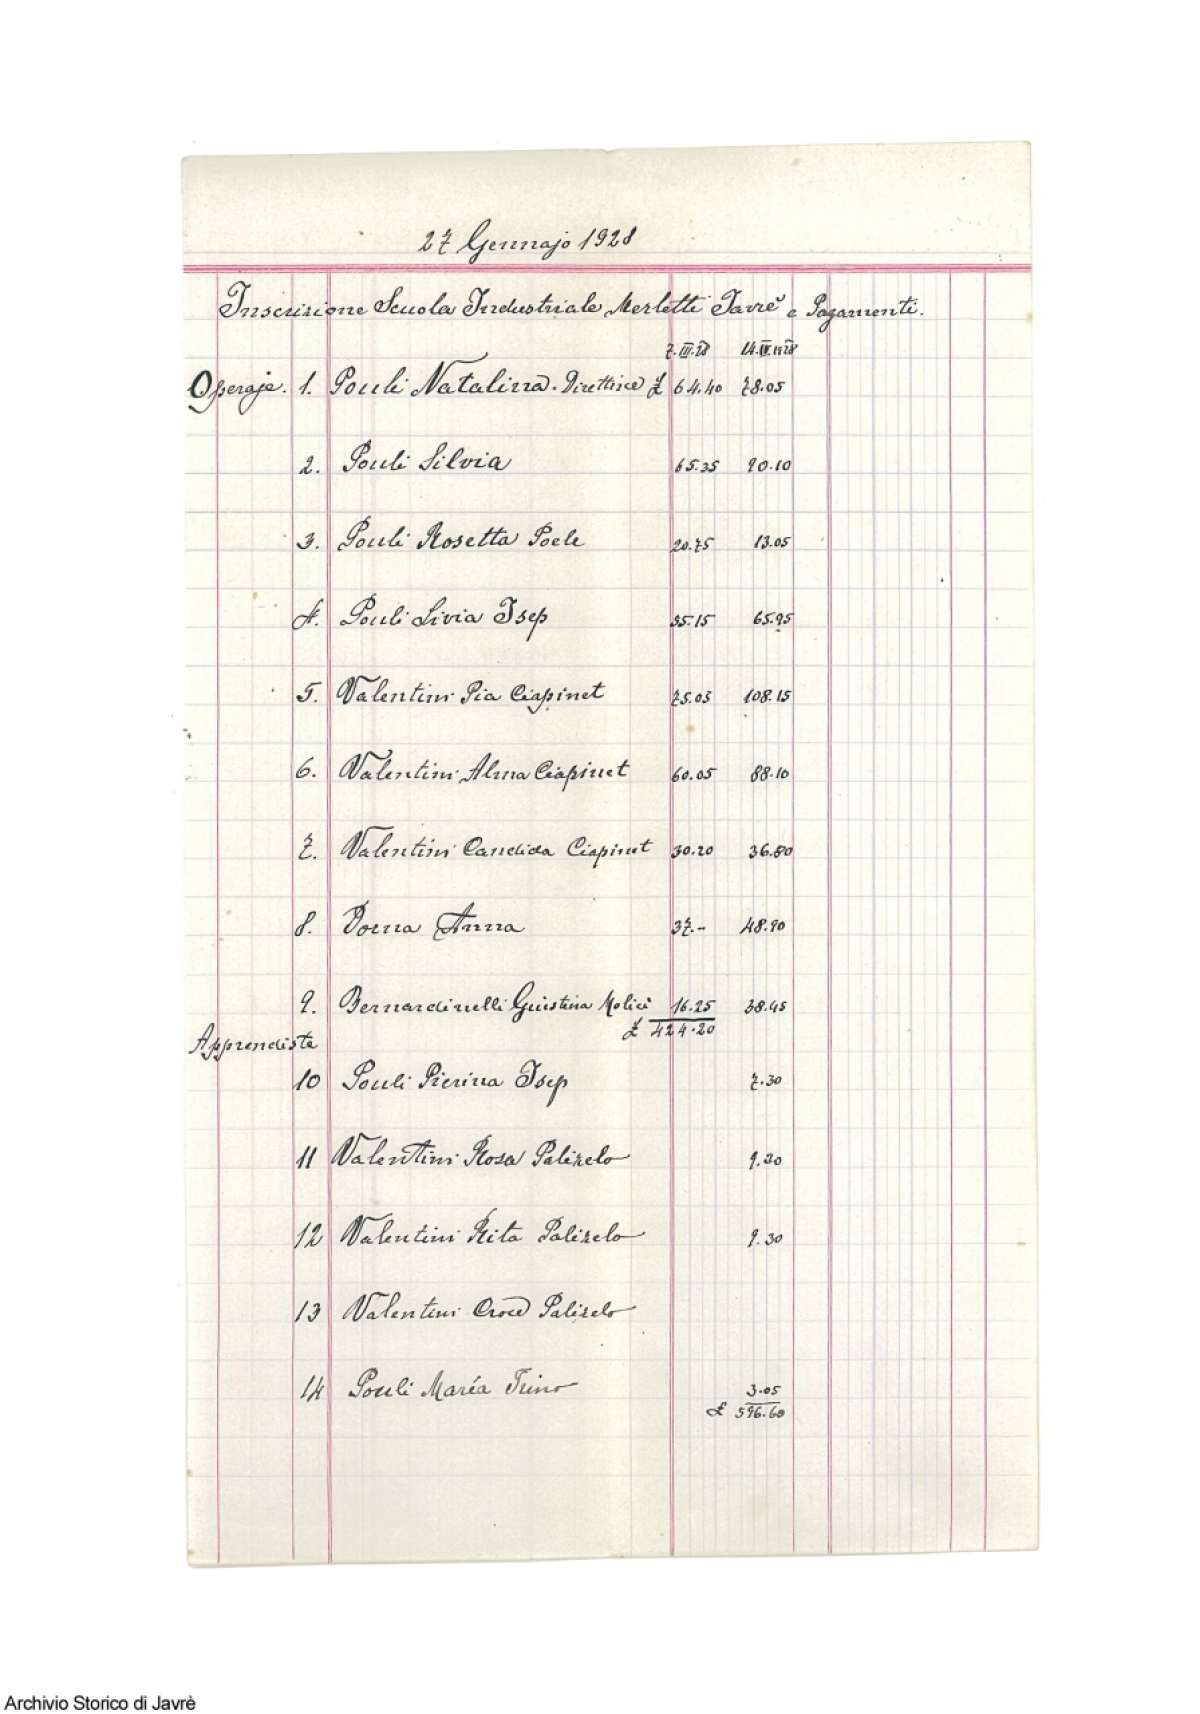 27 Gennajo 1928
Inscrizione Scuola Industriale Merletti Javrè e Pagamenti.
7.III.28 14.IV.1928
Operaje. 1. Pouli Natalina. Direttrice £ 64.40 78.05
2. Pouli Silvia 65.35 90.10
3. Pouli Rosetta Poele 20.75 13.05
4. Pouli Livia Isep 55.15 65.95
5. Valentini Pia Ciapinet 75.05 108.15
6. Valentini Alma Ciapinet 60.05 88.10
7. Valentini Candida Ciapinet 30.20 36.80
8. Dorna Anna 37.- 48.90
9. Bernardinelli Giustina Molici 16.25 38.45
£ 424.20
Apprendiste
10 Pouli Pierina Isep 7.30
11 Valentini Rosa Palizelo 9.20
12 Valentini Rita Palizelo 9.30
13 Valentini Croce Palizelo
14 Pouli Maria Trino 3.05
£ 596.60
Archivio Storico di Javrè